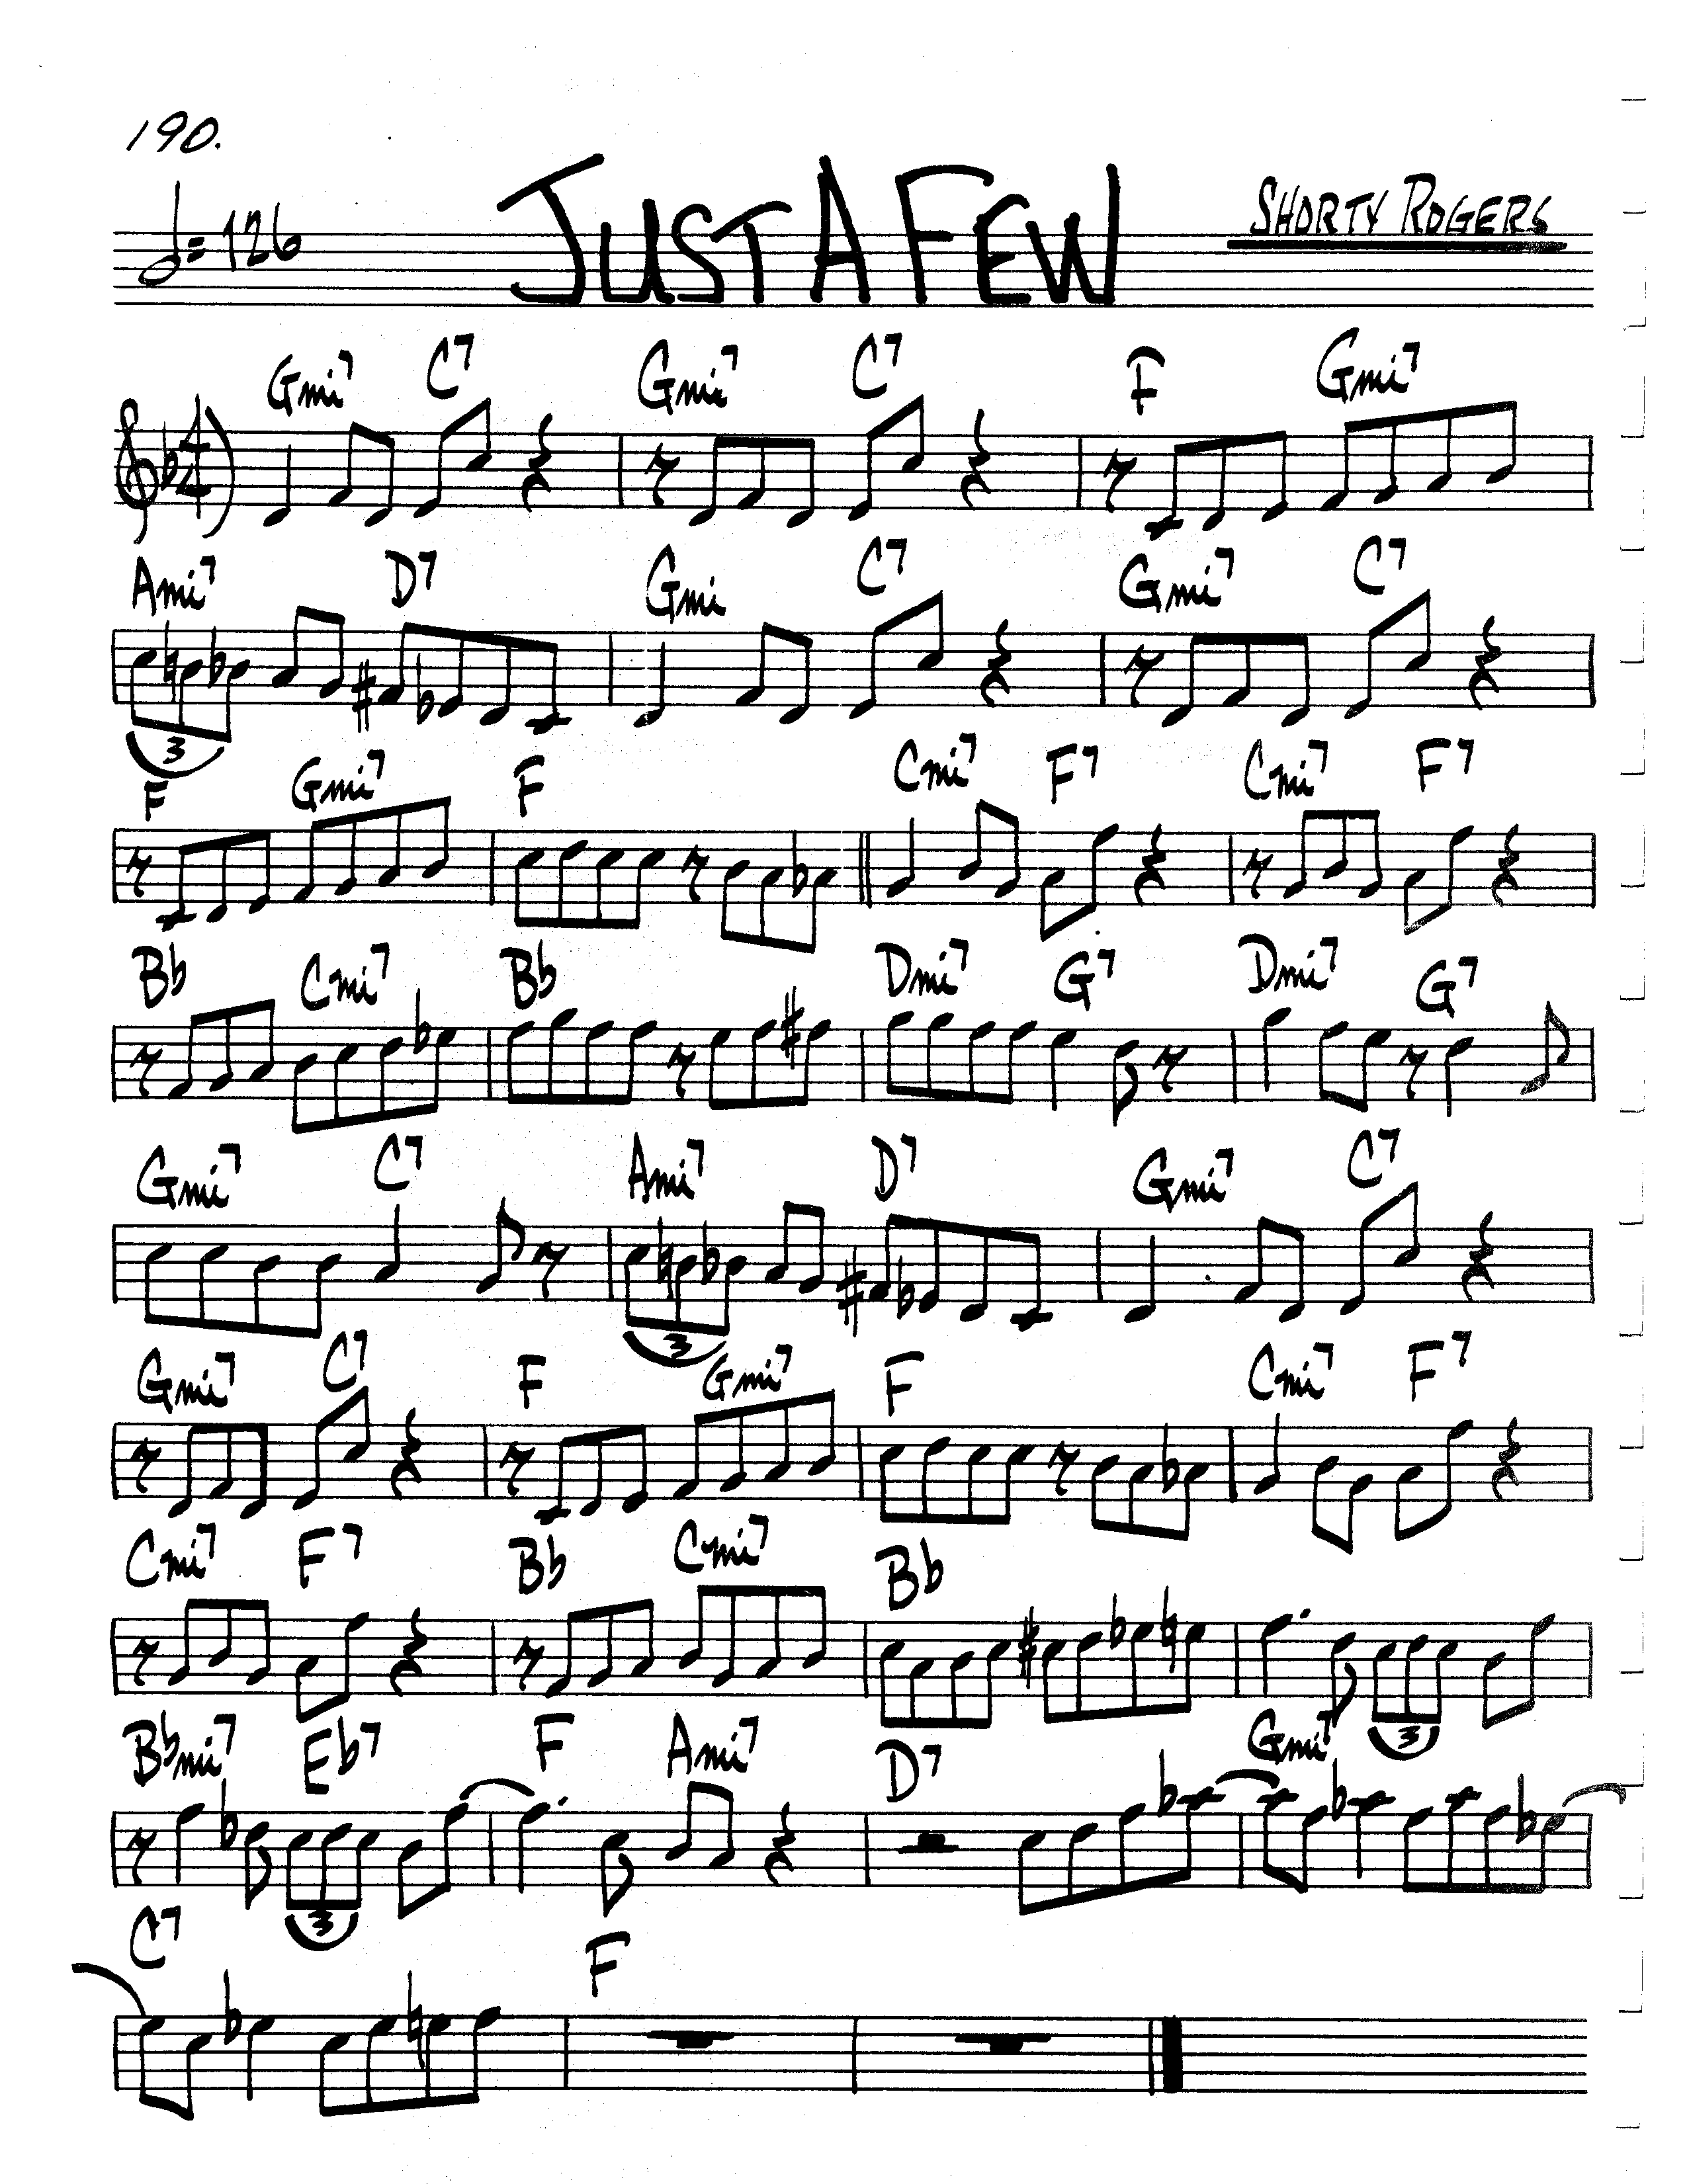 190.
JUST A FEW
SHORTY ROGERS
𝅗𝅥 = 126
Gmi7 C7 Gmi7 C7 F Gmi7
Ami7 D7 Gmi C7 Gmi7 C7
3
F Gmi7 F Cmi7 F7 Cmi7 F7
Bb Cmi7 Bb Dmi7 G7 Dmi7 G7
Gmi7 C7 Ami7 D7 Gmi7 C7
3
Gmi7 C7 F Gmi7 F Cmi7 F7
Cmi7 F7 Bb Cmi7 Bb
3
Bbmi7 Eb7 F Ami7 D7 Gmi7
3
C7 F